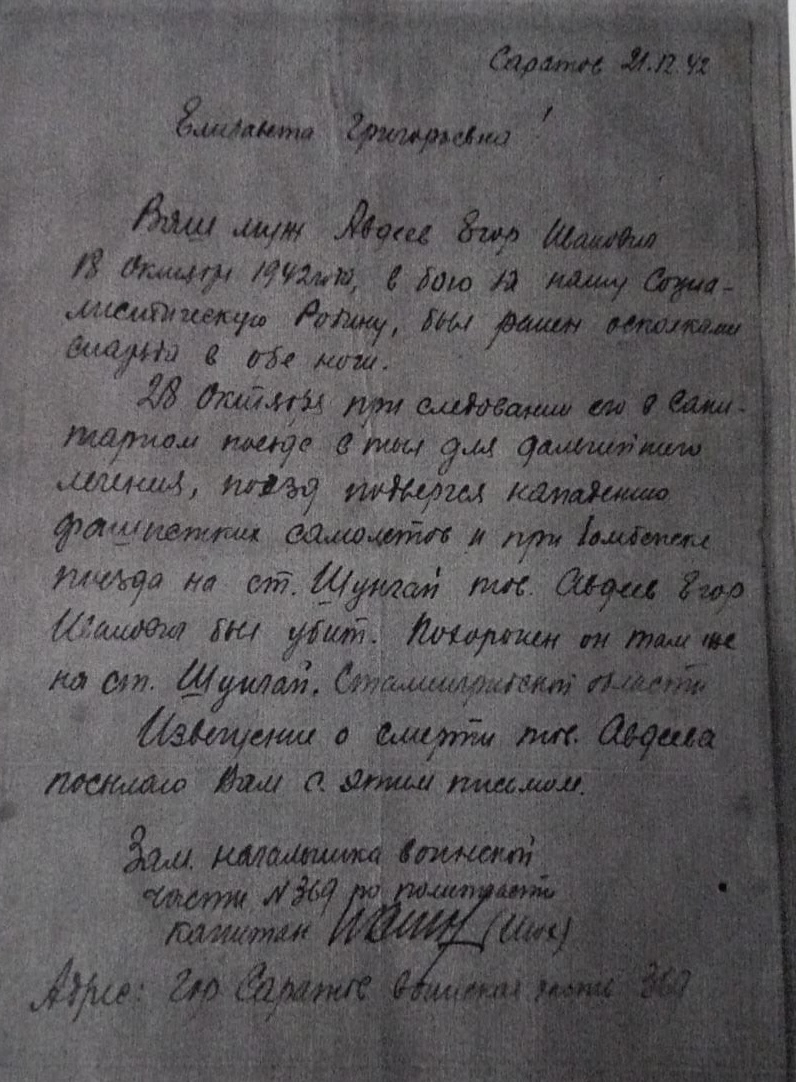 Саратов 21.12.42
Елизавета Григорьевна!
Ваш муж Авдеев Егор Иванович
18 Октября 1942 года, в бою за нашу Социа-
листическую Родину, был ранен осколками
снаряда в обе ноги.
28 Октября при следовании его в сани-
тарном поезде в тыл для дальнейшего
лечения, поезд подвергся нападению
фашистских самолетов и при бомбежке
поезда на ст. Шунгай тов. Авдеев Егор
Иванович был убит. Похоронен он там же
на ст. Шунгай. Сталинградской области
Извещение о смерти тов. Авдеева
посылаю Вам с этим письмом.
Зам. начальника воинской
части N 369 по политчасти
капитан
Адрес: гор Саратов воинская часть 369